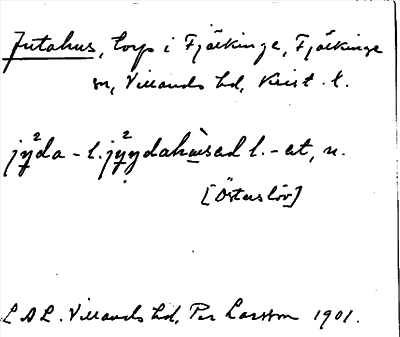 Jutahus, torp i Fjälkinge, Fjälkinge
sn, Villands hd, Krist. l.
jy²da - l. jy²ydahùsad l. -et, n.
[Österslöv]
LAL. Villands hd, Per Larsson 1901.